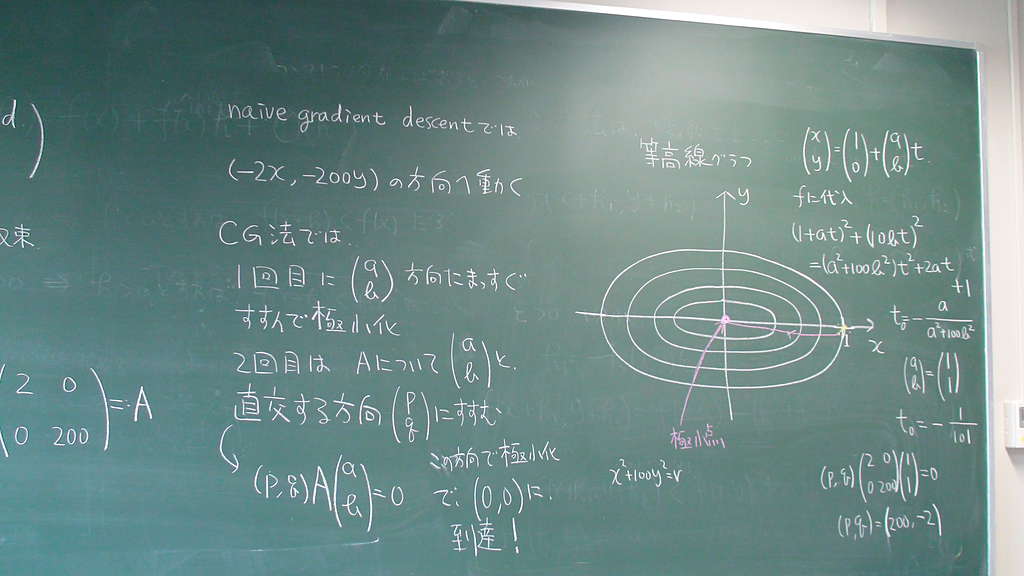 d.
収束.
(2 0
0 200) = A
naive gradient descentでは
(-2x, -200y) の方向へ動く
CG法では.
1回目に (a b) 方向にまっすぐ
すすんで極小化
2回目は Aについて (a b) と.
直交する方向 (p q) にすすむ
(p, q) A (a b) = 0
この方向で極小化
で, (0,0) に.
到達!
等高線グラフ
y
x
1
極小点
x²+100y²=r
(x y) = (1 0) + (a b) t.
fに代入
(1+at)²+(10bt)²
=(a²+100b²)t²+2at
+1
t₀ = - a / a²+100b²
(a b) = (1 1)
t₀ = - 1/101
(p, q) (2 0 0 200) (1 1) = 0
(p, q) = (200, -2)